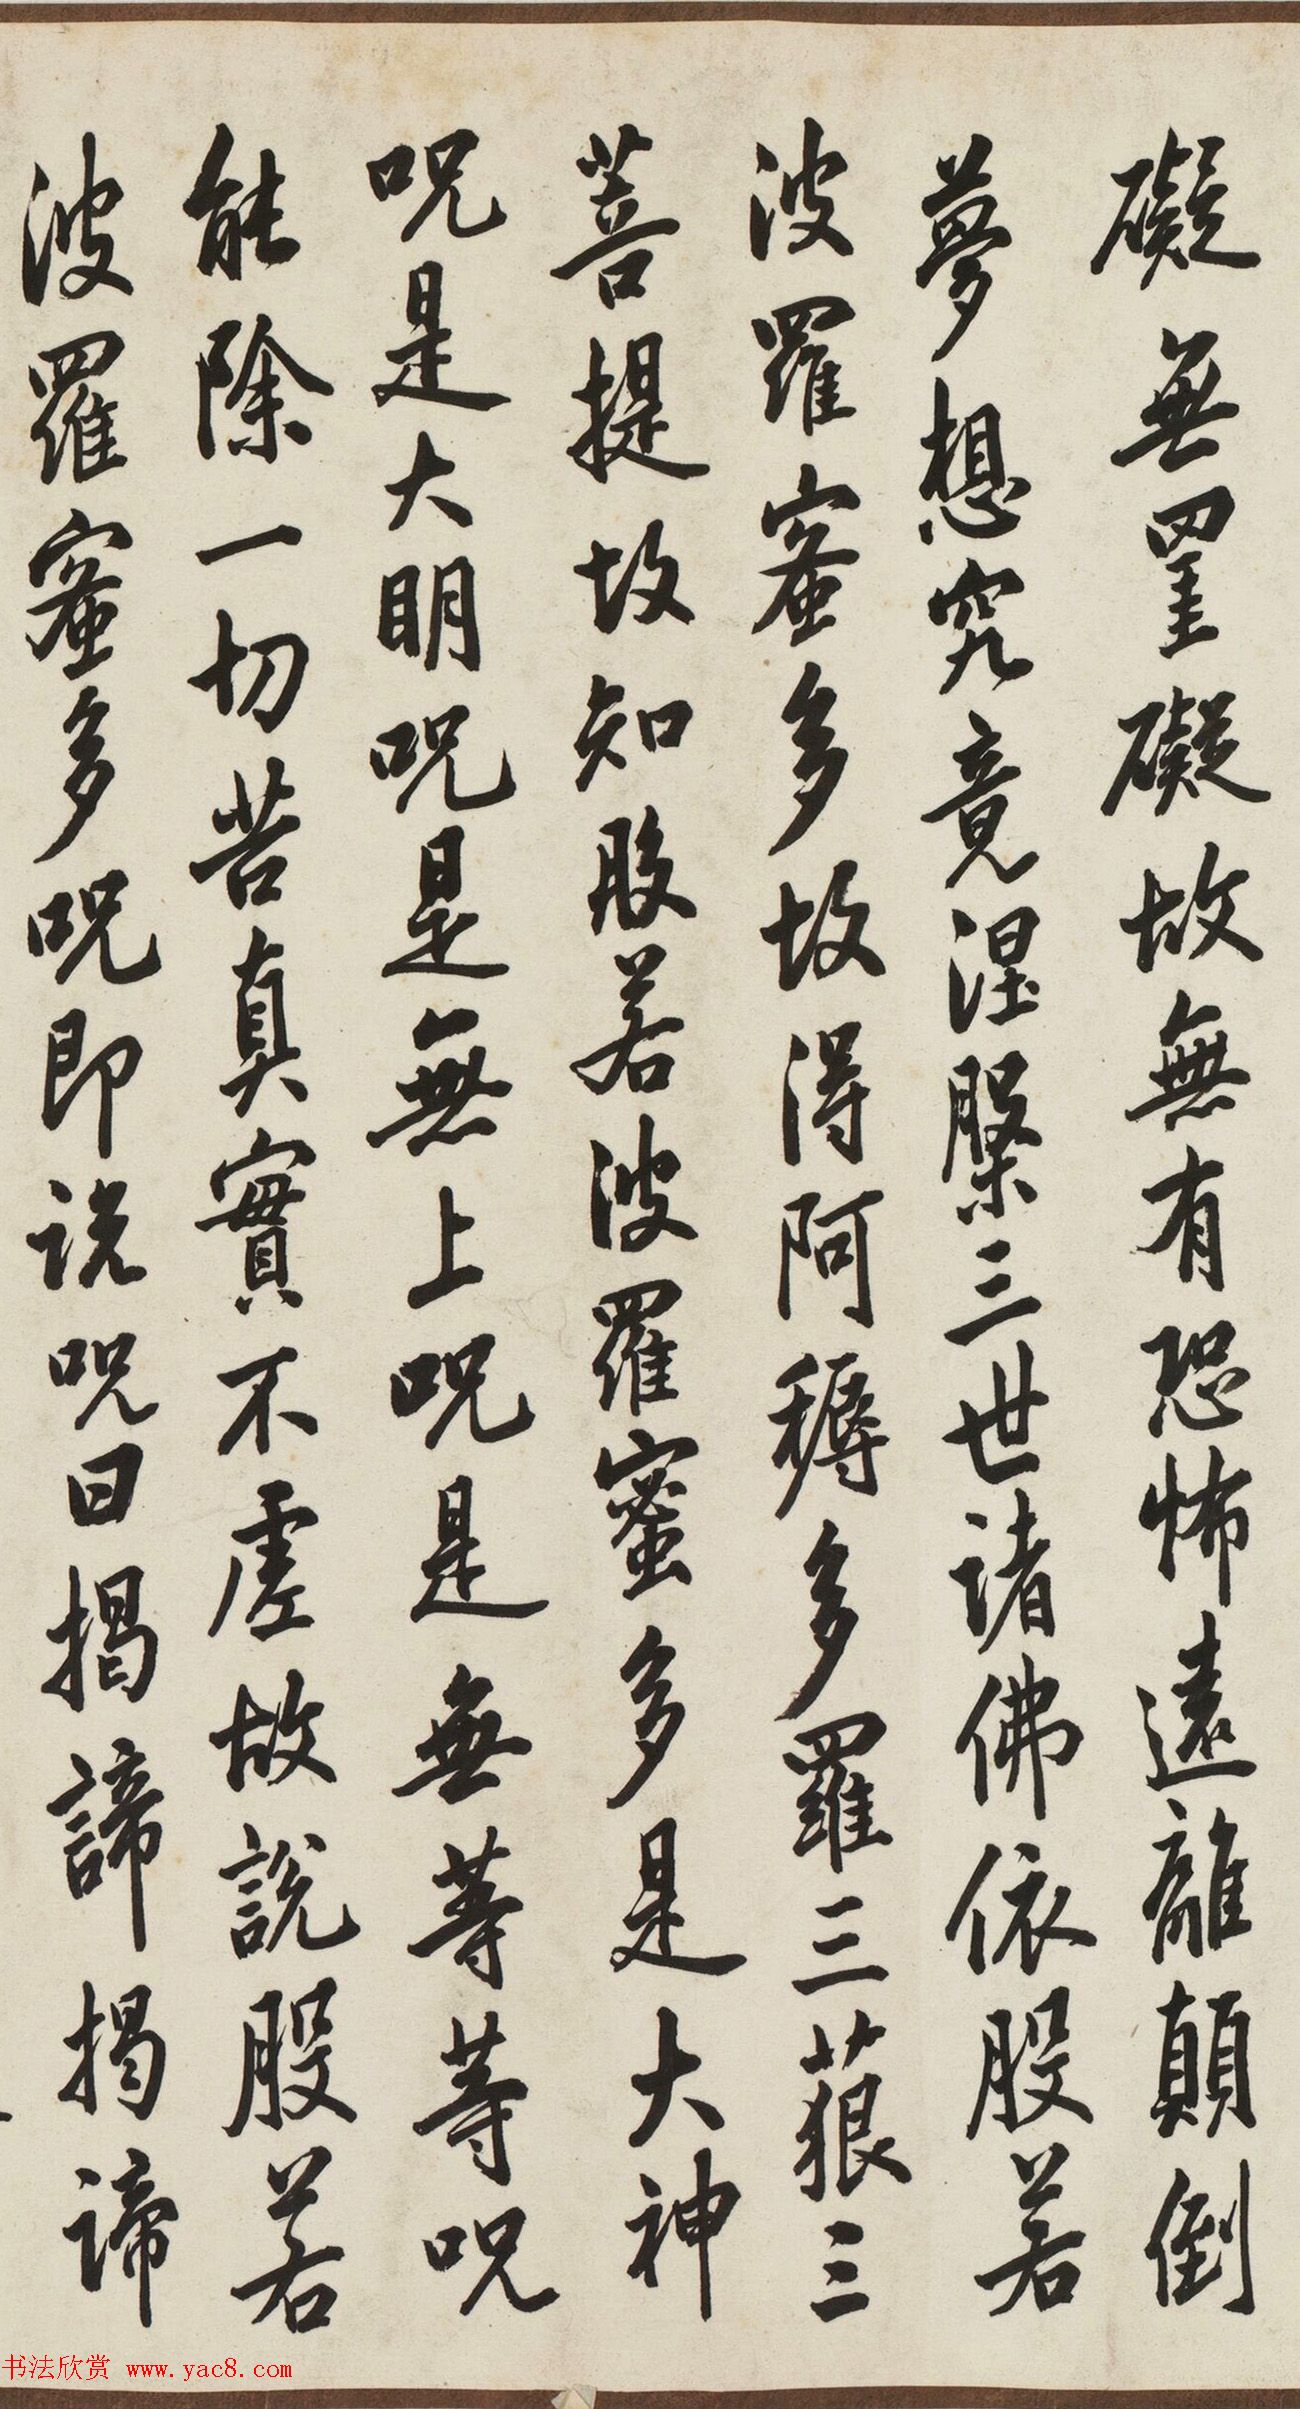 礙無罣礙故無有恐怖遠離顛倒
夢想究竟涅槃三世諸佛依般若
波羅蜜多故得阿耨多羅三藐三
菩提故知般若波羅蜜多是大神
呪是大明呪是無上呪是無等等呪
能除一切苦真實不虛故說般若
波羅蜜多呪即說呪曰揭諦揭諦
书法欣赏 www.yac8.com